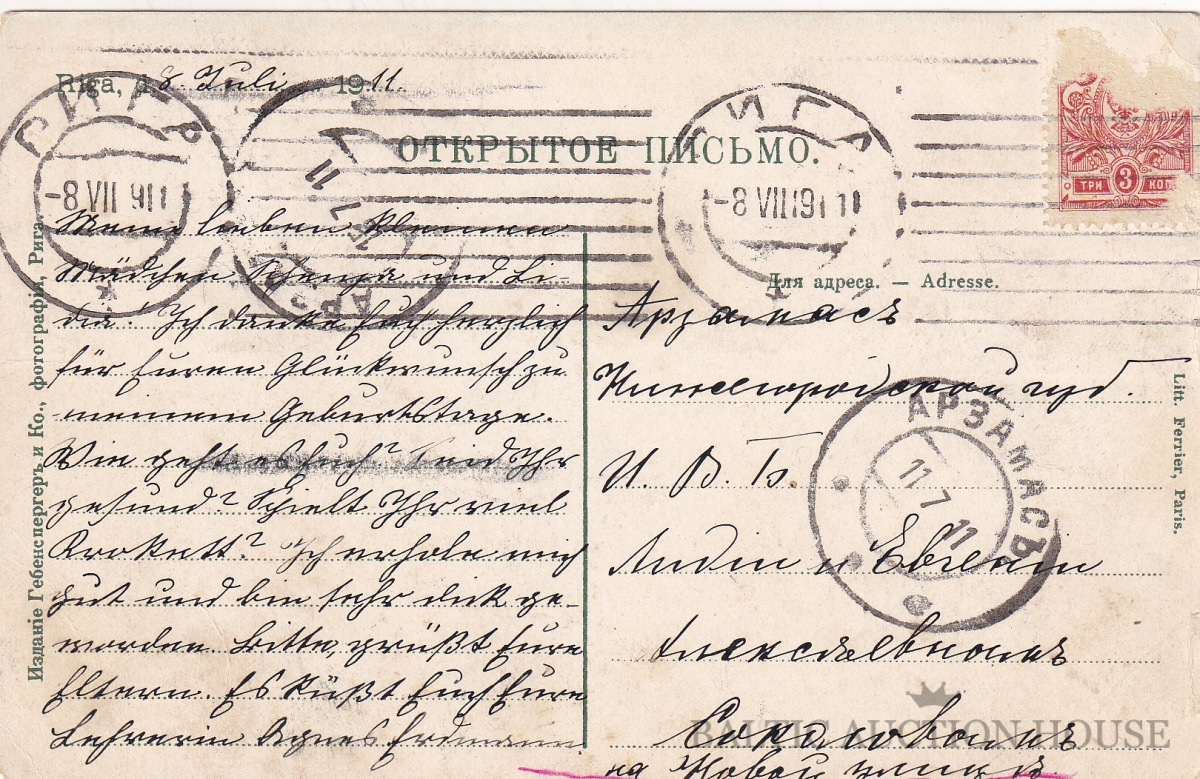 Riga, d. 8 Juli 1911.
ОТКРЫТОЕ ПИСЬМО.
РИГА
-8 VII 911
РИГА
-8 VII 1911
11 7 11
АРЗ
ТРИ 3 КОП
Meine lieben kleinen
Mädchen Schenja und Li-
dia! Ich danke Euch herzlich
für Euren Glückwunsch zu
meinem Geburtstage.
Wie geht es Euch? Seid Ihr
gesund? Spielt Ihr viel
Krokett? Ich erhole mich
gut und bin sehr dick ge-
worden. Bitte, grüßt Eure
Eltern. Es küßt Euch Eure
Lehrerin Agnes Erdmann
Для адреса. — Adresse.
Арзамасъ
Нижегородской губ.
И. В. Б.
Лидіи и Евгеніи
Алексѣевнамъ
Соколовымъ
на Новой улицѣ.
АРЗАМАСЪ
11 7 11
Изданіе Гебенспергеръ и Ко., фотографія, Рига.
Litt. Ferrier, Paris.
BALTIC AUCTION HOUSE